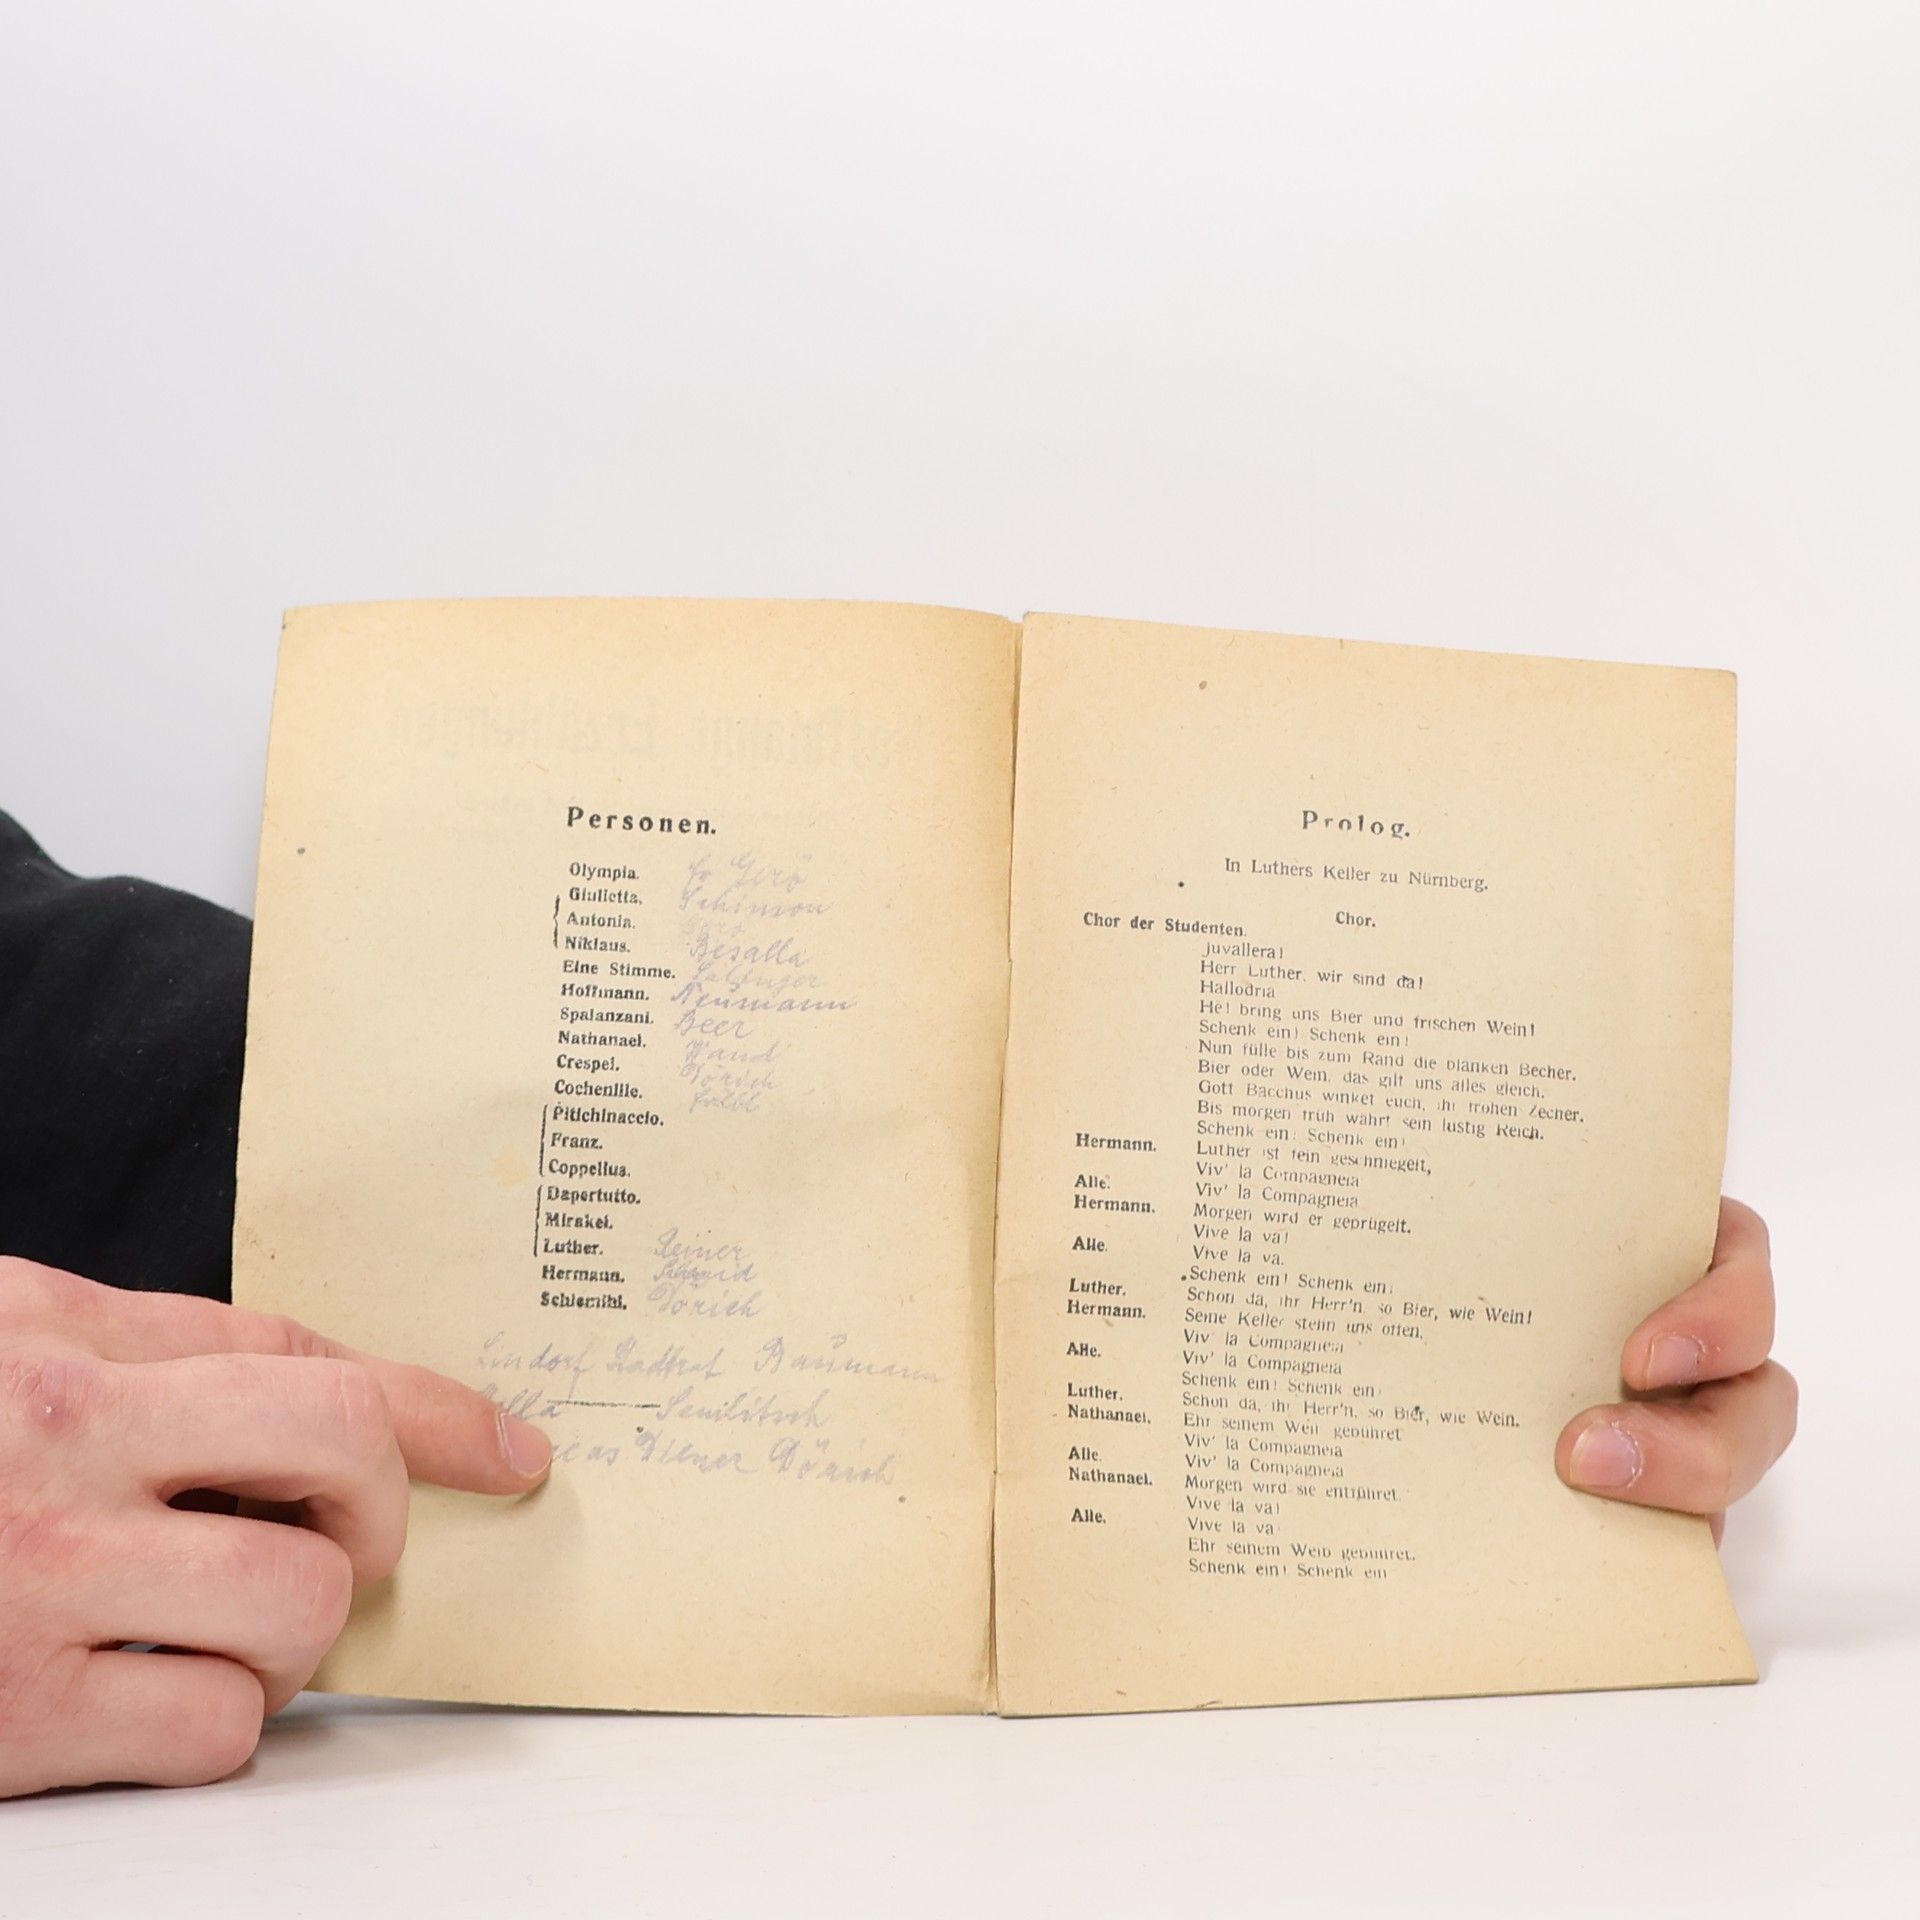 Personen.
Olympia. Gerö
Giulietta. Schimon
Antonia.
Niklaus. Besalla
Eine Stimme. Salinger
Hoffmann. Neumann
Spalanzani. Beer
Nathanael. Wandi
Crespel. Dörich
Cochenille.
Pitichinaccio.
Franz.
Coppelius.
Dapertutto.
Mirakel.
Luther. Reiner
Hermann. Schmid
Schlemihl. Dörich
Lindorf Stadtrat Baumann
Diener Dörich
Prolog.
In Luthers Keller zu Nürnberg.
Chor.
Chor der Studenten.
Juvallera!
Herr Luther, wir sind da!
Hallodria
He! bring uns Bier und frischen Wein!
Schenk ein! Schenk ein!
Nun fülle bis zum Rand die blanken Becher.
Bier oder Wein, das gilt uns alles gleich.
Gott Bacchus winket euch, ihr frohen Zecher.
Bis morgen früh währt sein lustig Reich.
Schenk ein! Schenk ein!
Hermann. Luther ist fein geschniegelt,
Viv' la Compagneia
Alle. Viv' la Compagneia
Hermann. Morgen wird er geprügelt.
Vive la va!
Alle. Vive la va.
Schenk ein! Schenk ein!
Luther. Schon da, ihr Herr'n, so Bier, wie Wein!
Hermann. Seine Keller stehn uns offen,
Viv' la Compagneia
Alle. Viv' la Compagneia
Schenk ein! Schenk ein!
Luther. Schon da, ihr Herr'n, so Bier, wie Wein.
Nathanael. Ehr seinem Weib gebühret
Viv' la Compagneia
Alle. Viv' la Compagneia
Nathanael. Morgen wird sie entführet.
Vive la va!
Alle. Vive la va
Ehr seinem Weib gebühret.
Schenk ein! Schenk ein